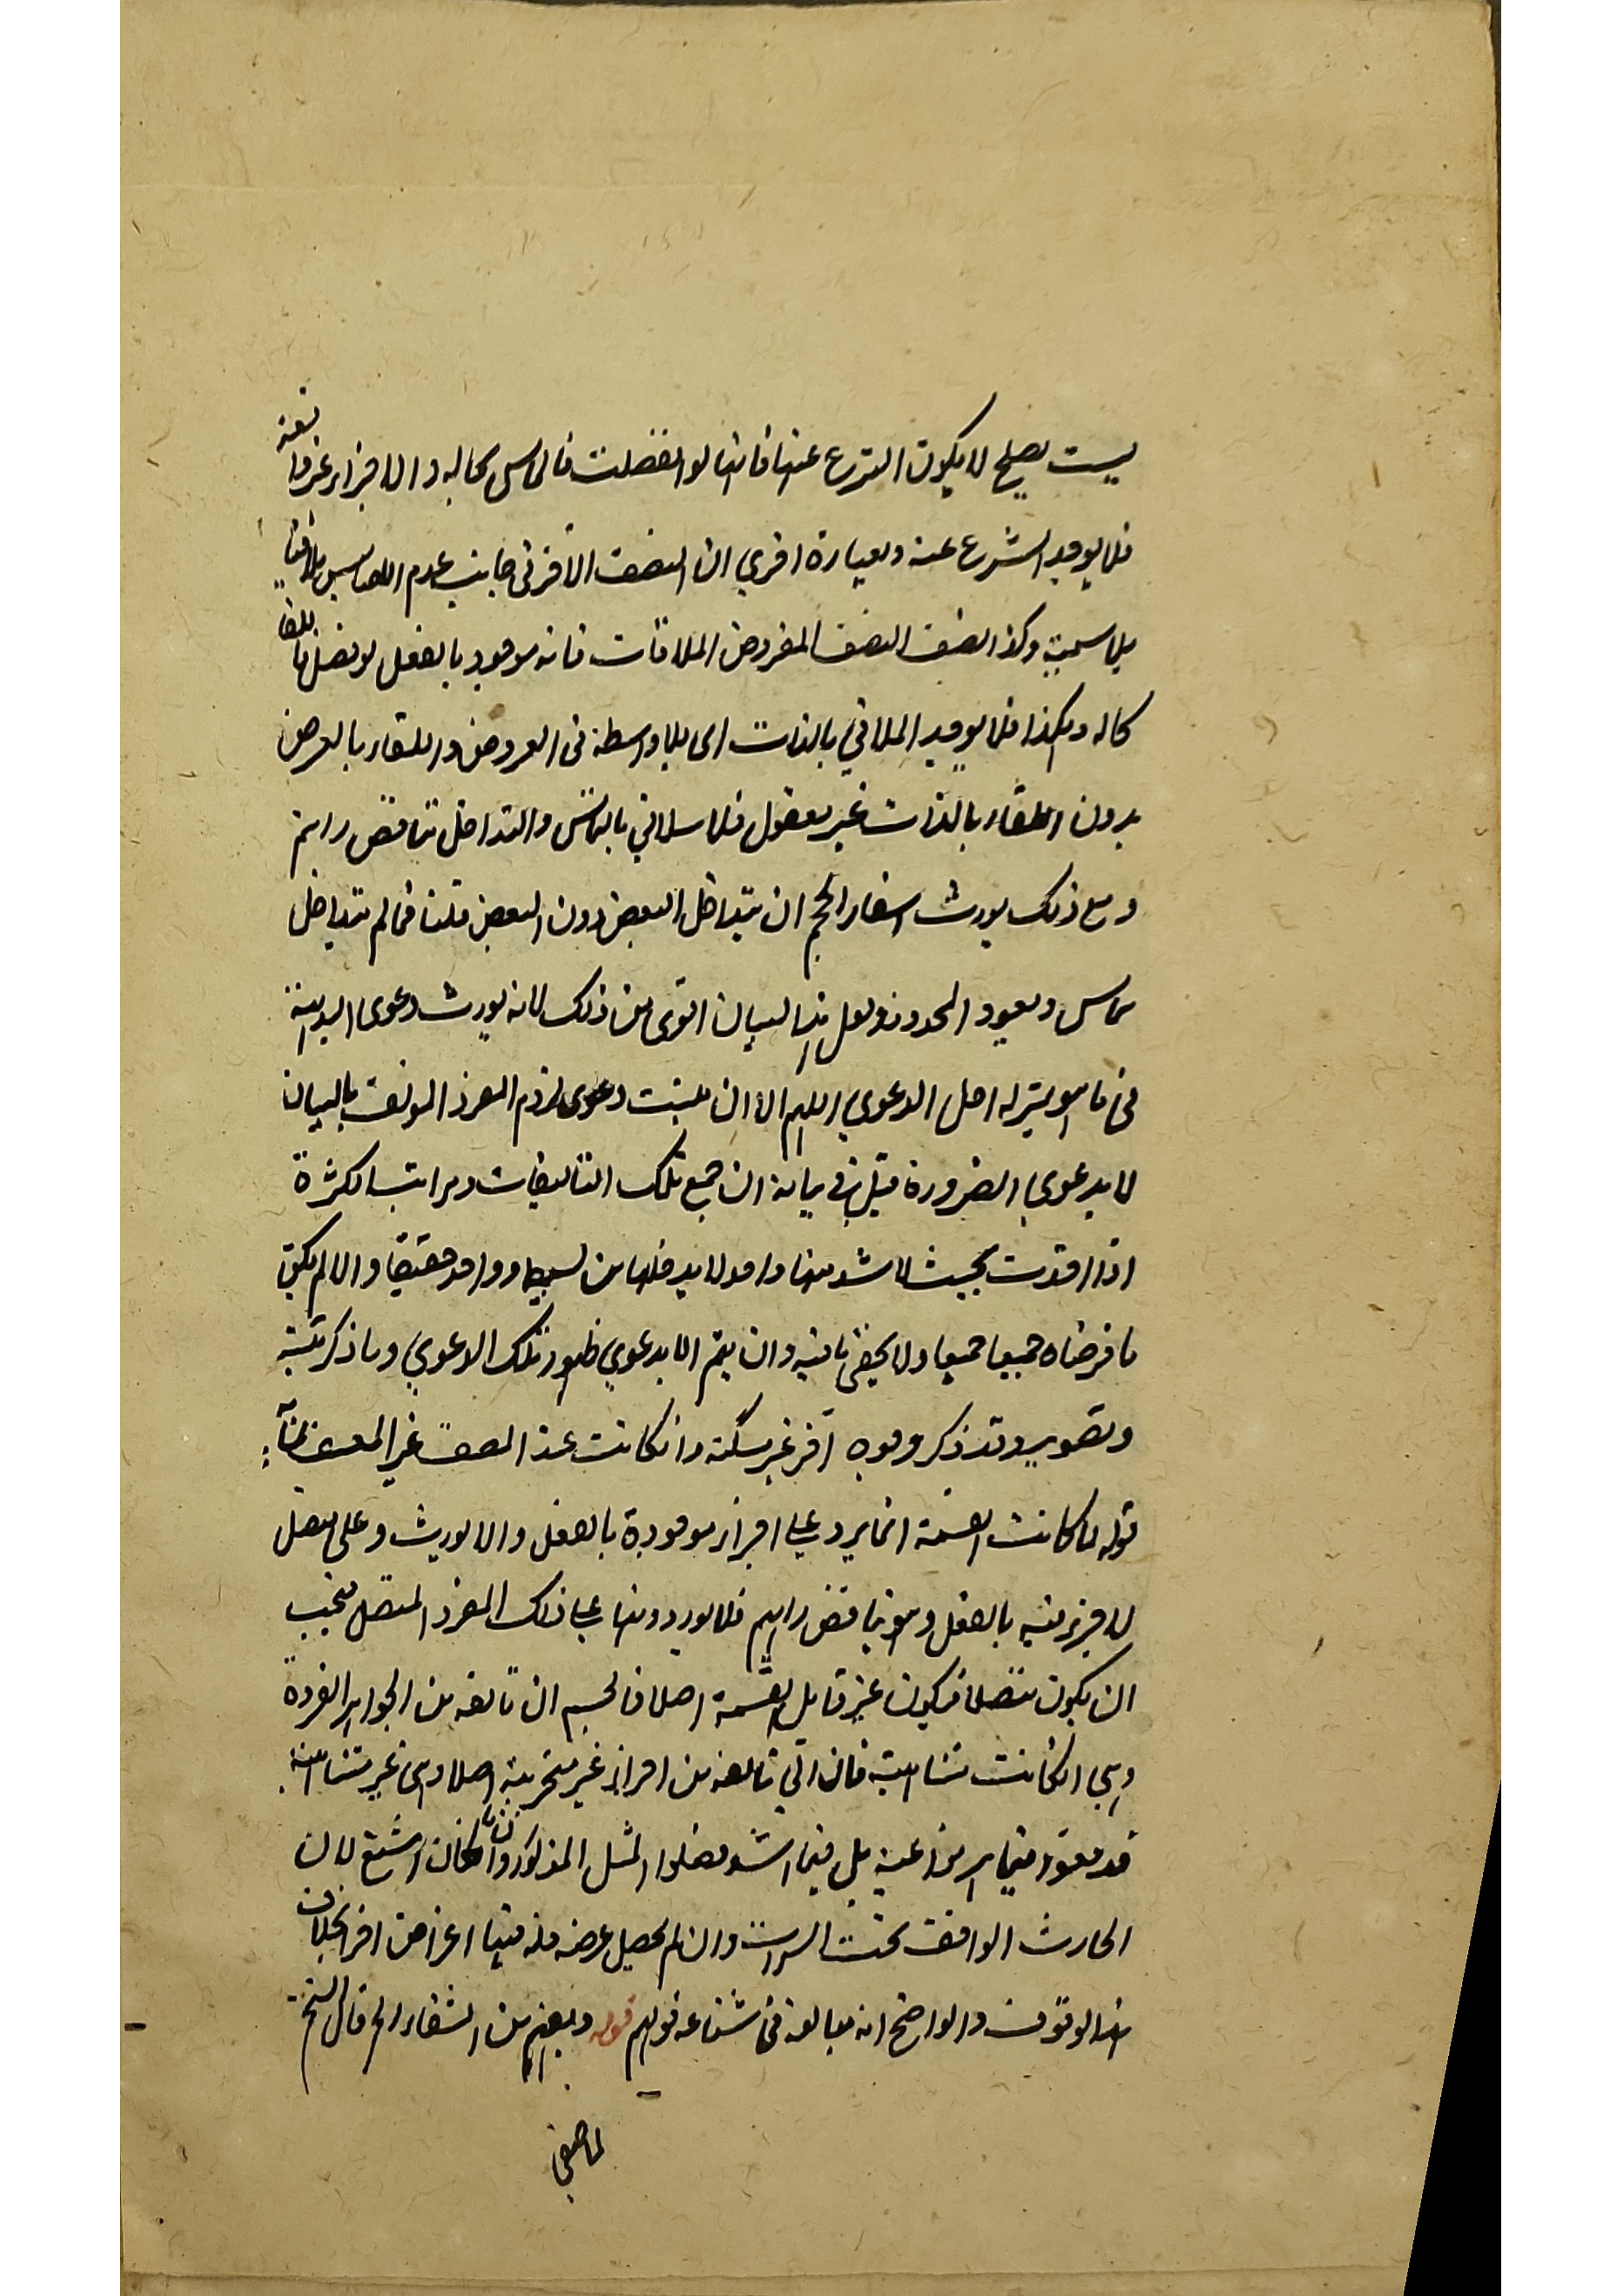 ليست يصلح لا يكون التزع عنها فانها لو انفصلت فالماس بحاله والاجزاء غير واقعة
فلا يوجد الشرع عنه وبعبارة اخرى ان النصف الآخر في جانب عدم اللماس ملاقيا
بلا سمية وكذا نصف النصف المفروض الملاقات فانه موجود بالفعل لو فصل فاللقا
بحاله وهكذا فلا يوجد الملاقي بالذات اى بلا واسطة في العروض واللقاء بالعرض
بدون اللقاء بالذات غير معقول فلا ملاقي بالتماس والتداخل تناقض رايهم
ومع ذلك يورث اسفار الحجم ان يتداخل البعض دون البعض قلنا فما لم يتداخل
تماس ويعود المحدود ولعل هذا البيان اقوى من ذلك لانه يورث دعوى البداهة
في ما هو بمنزلة اصل الدعوى اللهم الا ان يثبت دعوى لزوم المفرد المؤلف بالبيان
لا بدعوى الضرورة قيل في بيانه ان جميع تلك التاليفات ومراتب الكثرة
اذا اخذت بحيث لا يشذ منها واحد لا بد فلها من بسيط وواحد حقيقيا والا لم يكن
ما فرضناه جميعا جميعا ولا يخفى ما فيه وان يتم الا بدعوى ظهور تلك الدعوى وما ذكر تنبيه
وتصوير وقد ذكر وجوه آخر غير مسكتة وان كانت عند المصنف غير المعسف ظنا
قوله لما كانت القسمة انما يرد على اجزاء موجودة بالفعل والا لورث وعلى متصل
لا جزء فيه بالفعل وهو يناقض رايهم فلا يورد ونها على ذلك المفرد المتصل فيجب
ان يكون متصلا فيكون غير قابل القسمة اصلا فالجسم ان تالفه من الجواهر الفردة
وهي ان كانت متناهية فان التي تالفه من افراد غير متجزية اصلا وهي غير متناهية
قد وقعوا فيما هربوا عنه بل فيما اشد فضلوا المثل المذكور وان كان اشنع لان
الحارث الواقف تحت السراب وان لم يحصل غرضه فله فيها اغراض اخر بخلاف
هذا الوقوف والواضح انه مبالغة في شناعة قولهم قوله وبعضهم من الشفاء الخ قال الشيخ